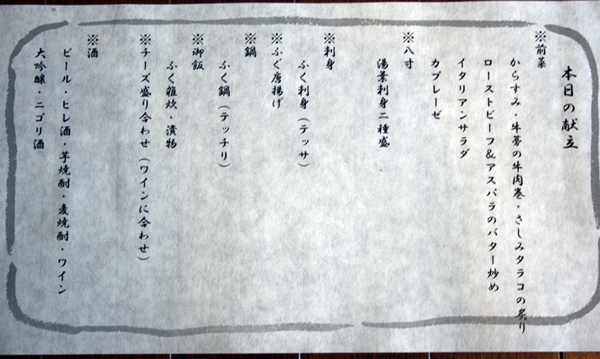 本日の献立
※前菜
からすみ・牛蒡の牛肉巻・さしみタラコの炙り
ローストビーフ&アスパラのバター炒め
イタリアンサラダ
カプレーゼ
※八寸
湯葉刺身二種盛
※刺身
ふく刺身(テッサ)
※ふぐ唐揚げ
※鍋
ふく鍋(テッチリ)
※御飯
ふく雑炊・漬物
※チーズ盛り合わせ(ワインに合わせ)
※酒
ビール・ヒレ酒・芋焼酎・麦焼酎・ワイン
大吟醸・ニゴリ酒